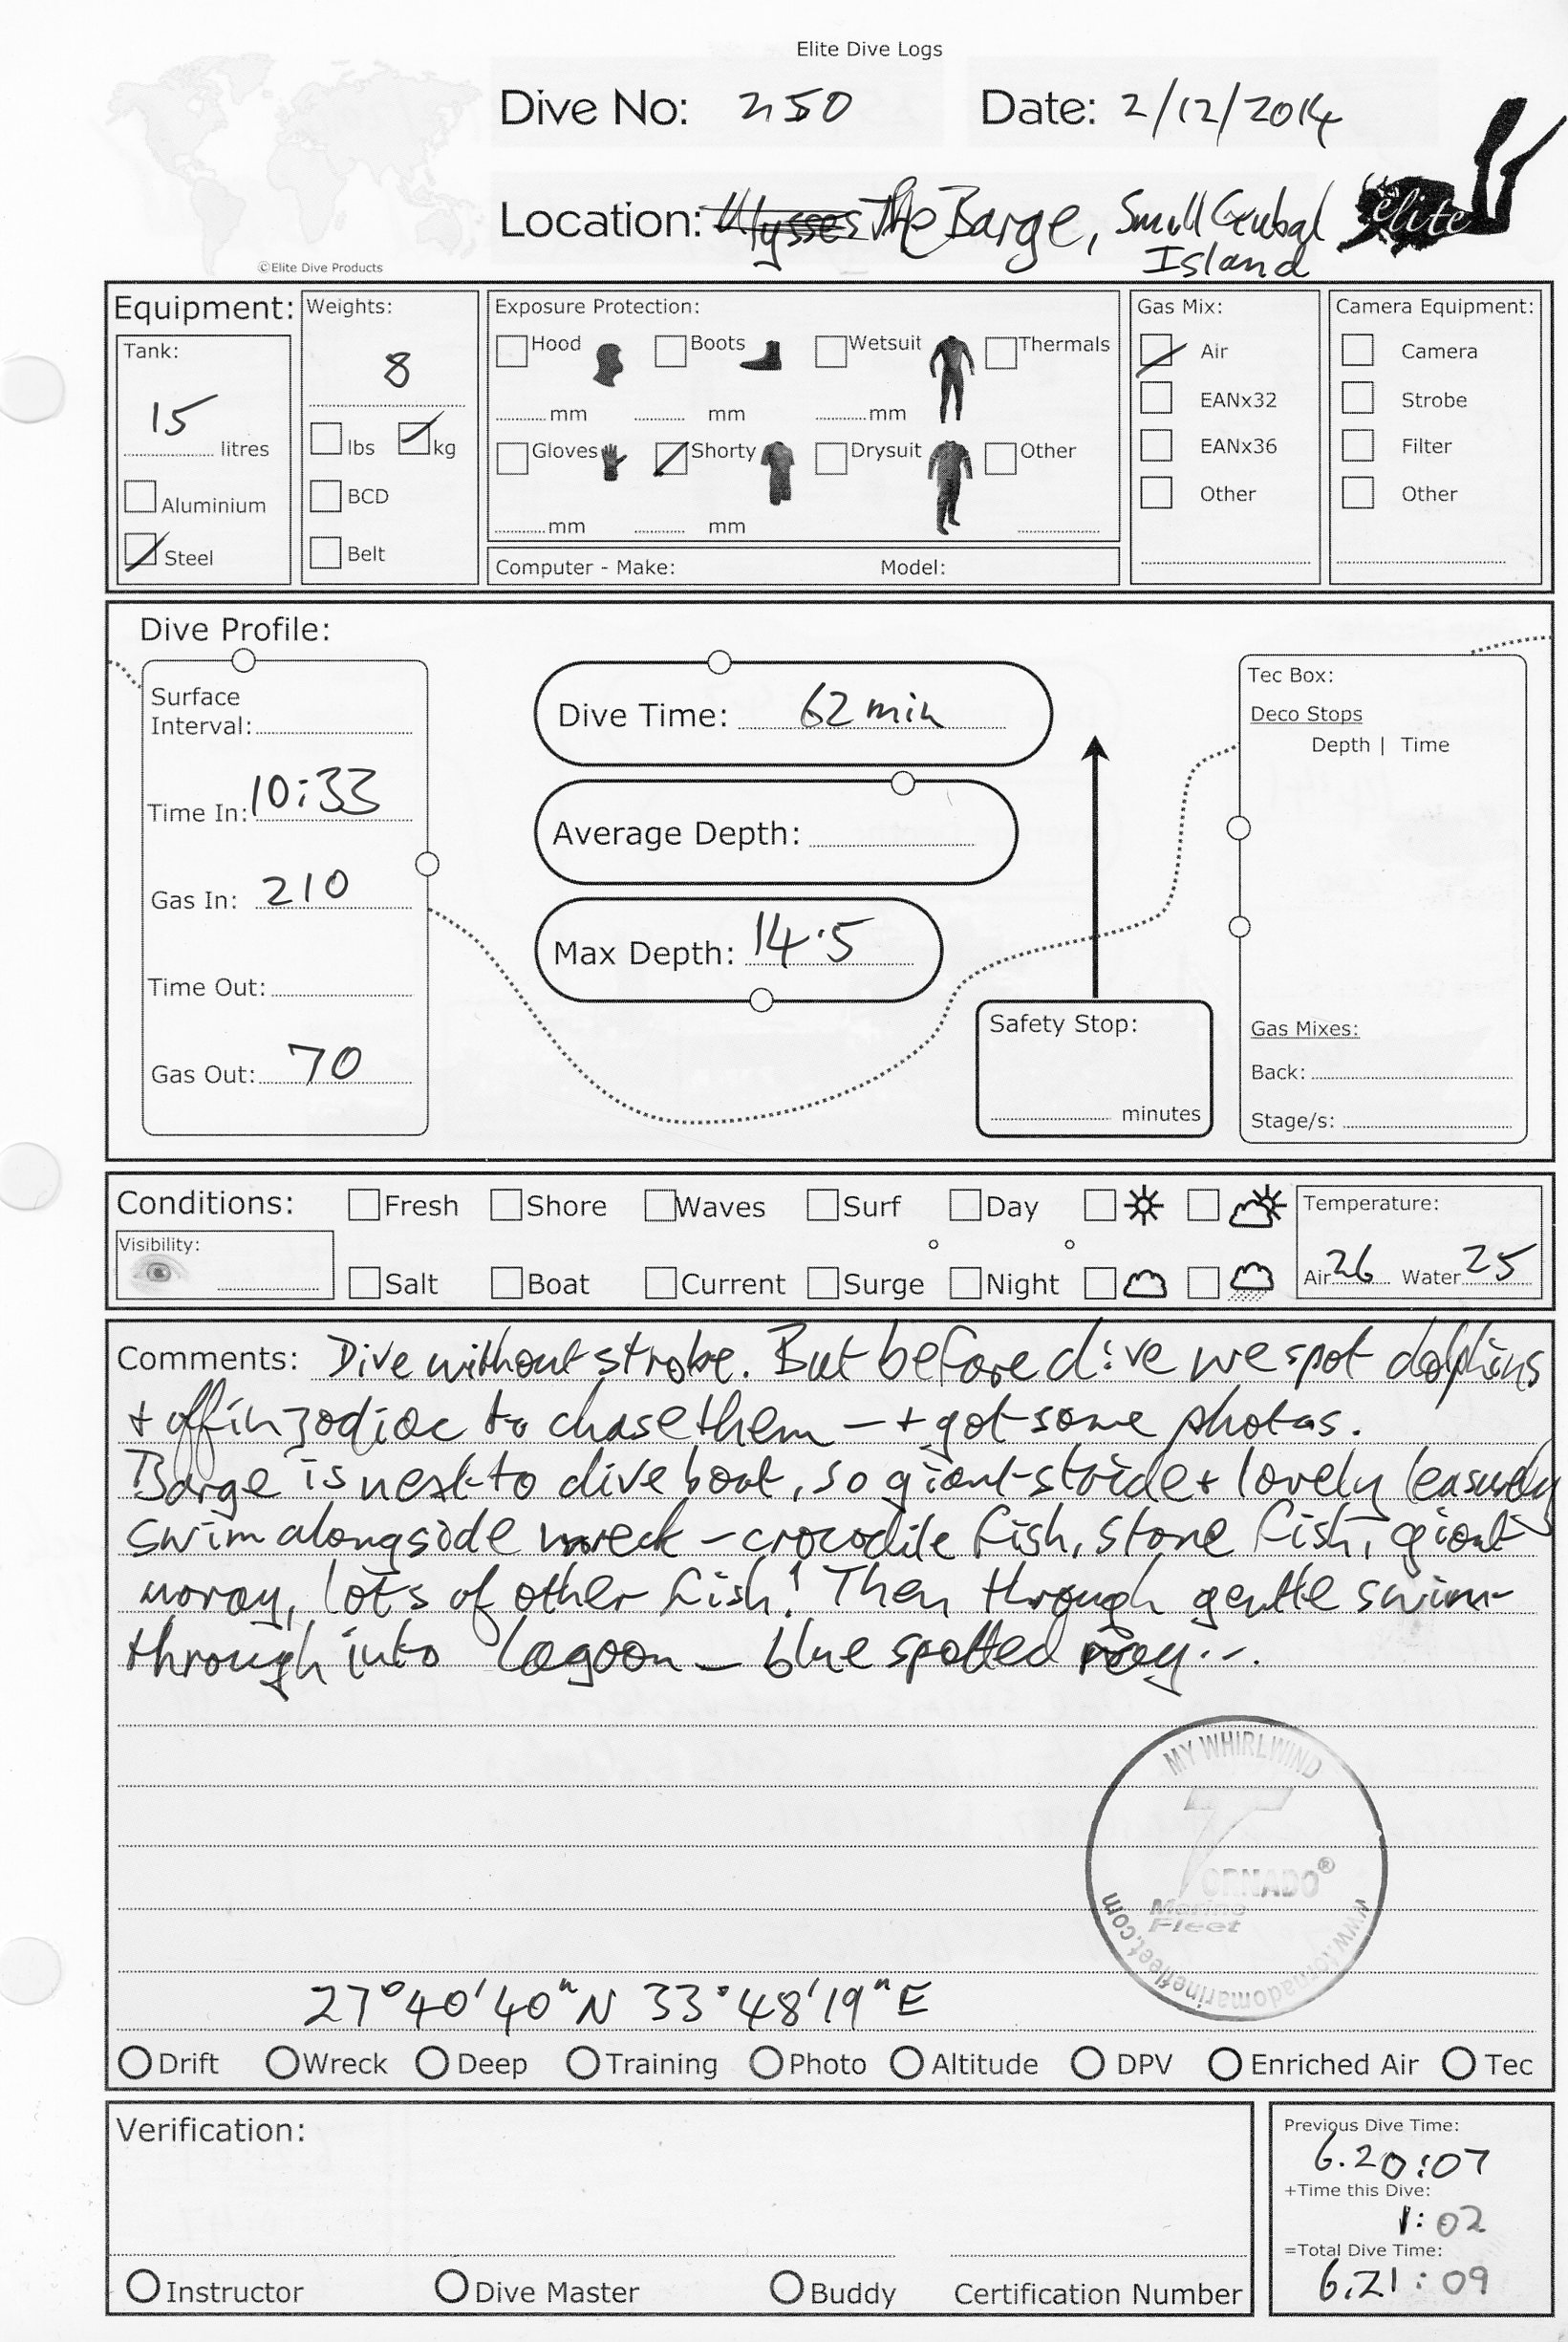 Elite Dive Logs
Dive No: 250 Date: 2/12/2014
Location: Ulysses The Barge, Small Gubal
Island
elite
©Elite Dive Products
Equipment:
Tank:
15 litres
Aluminium
Steel
Weights:
8
lbs kg
BCD
Belt
Exposure Protection:
Hood Boots Wetsuit Thermals
mm mm mm
Gloves Shorty Drysuit Other
mm mm
Computer - Make: Model:
Gas Mix:
Air
EANx32
EANx36
Other
Camera Equipment:
Camera
Strobe
Filter
Other
Dive Profile:
Surface
Interval:
Time In: 10:33
Gas In: 210
Time Out:
Gas Out: 70
Dive Time: 62 min
Average Depth:
Max Depth: 14.5
Safety Stop:
minutes
Tec Box:
Deco Stops
Depth | Time
Gas Mixes:
Back:
Stage/s:
Conditions: Fresh Shore Waves Surf Day
Visibility:
Salt Boat Current Surge Night
Temperature:
Air 26 Water 25
Comments: Dive without strobe. But before dive we spot dolphins
+ off in zodiac to chase them – + got some photos.
Barge is next to dive boat, so giant-stride + lovely leasurely
swim alongside wreck – crocodile fish, stone fish, giant
moray, lots of other fish! Then through gentle swim-
through into lagoon – blue spotted ray...
MY WHIRLWIND
TORNADO®
Marine
Fleet
www.tornadomarinefleet.com
27°40'40"N 33°48'19"E
Drift Wreck Deep Training Photo Altitude DPV Enriched Air Tec
Verification:
Instructor Dive Master Buddy Certification Number
Previous Dive Time:
6.20:07
+Time this Dive:
1:02
=Total Dive Time:
6.21:09